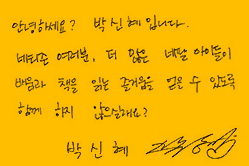 안녕하세요? 박신혜입니다.
네티즌 여러분, 더 많은 네팔 아이들이
배움과 책을 읽는 즐거움을 얻을 수 있도록
함께 하지 않으실래요?
박신혜